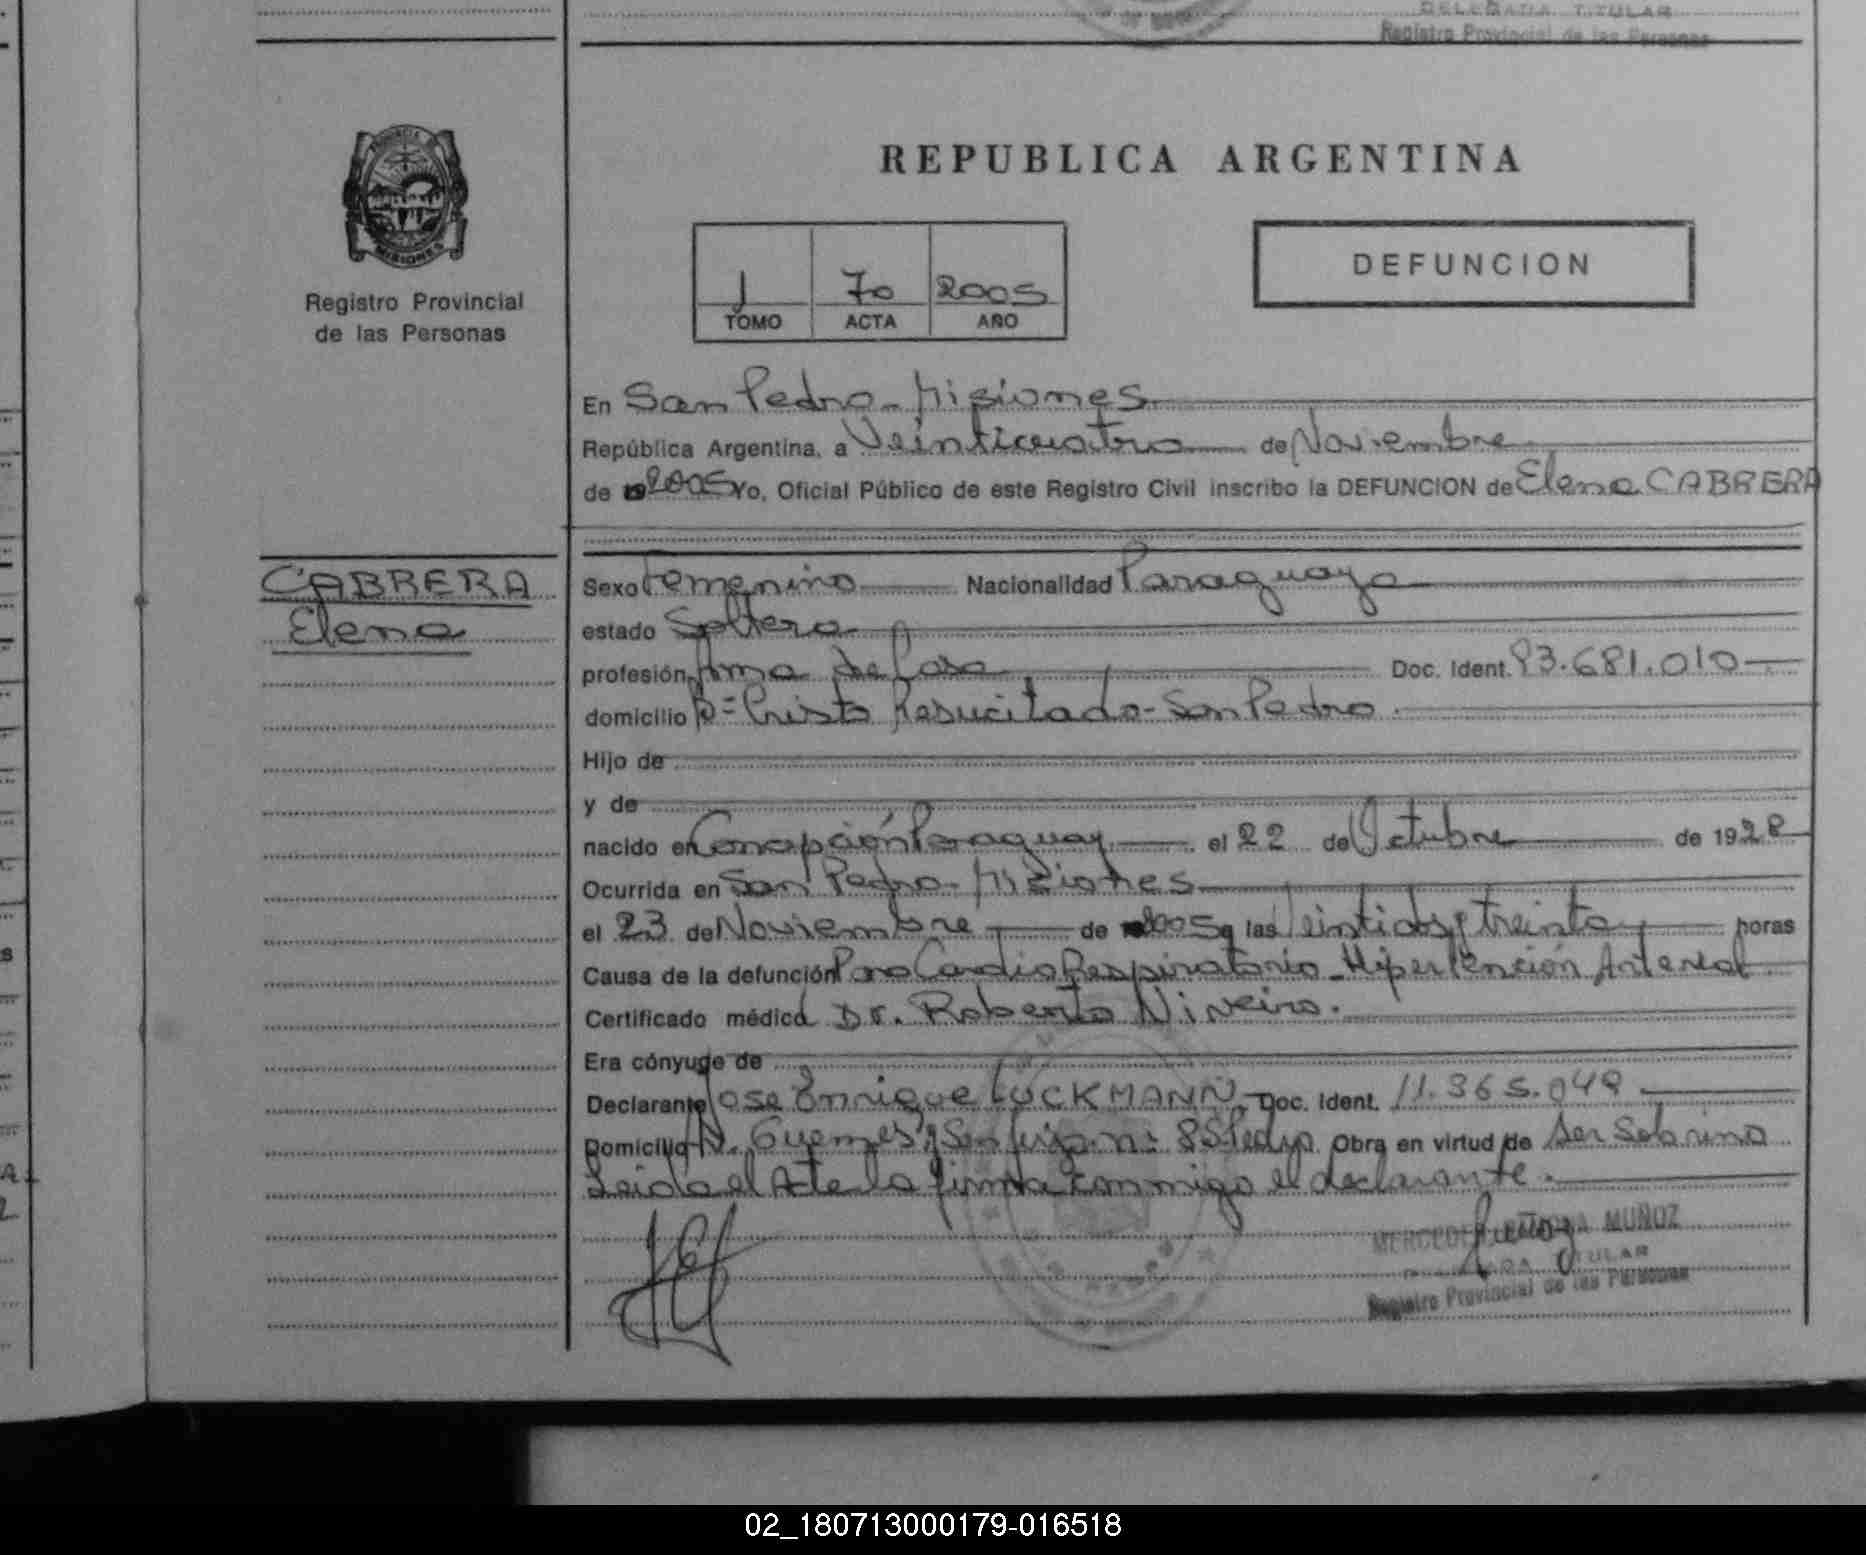 DELEGADA TITULAR
Registro Provincial de las Personas
PROVINCIA DE
MISIONES
Registro Provincial
de las Personas
REPUBLICA ARGENTINA
DEFUNCION
1 70 2005
TOMO ACTA AÑO
En San Pedro - Misiones
República Argentina, a Veinticuatro de Noviembre
de 2005 Yo, Oficial Público de este Registro Civil inscribo la DEFUNCION de Elena CABRERA
CABRERA
Elena
Sexo Femenino Nacionalidad Paraguaya
estado Soltera
profesión Ama de Casa Doc. Ident. 93.681.010
domicilio Bº Cristo Resucitado - San Pedro.
Hijo de
y de
nacido en Concepción Paraguay el 22 de Octubre de 1928
Ocurrida en San Pedro - Misiones
el 23 de Noviembre de 2005 a las Veintidos y treinta horas
Causa de la defunción Paro Cardio Respiratorio - Hipertención Arterial
Certificado médico Dr. Roberto Niveiro.
Era cónyuge de
Declarante Jose Enrique LUCKMANN Doc. Ident. 11.365.049
Domicilio Av. Guemes y San Juan nº 8 S Pedro Obra en virtud de ser Sobrino
Leida el Acta la firma conmigo el declarante.
MERCEDES RAMONA MUÑOZ
DELEGADA TITULAR
Registro Provincial de las Personas
02_180713000179-016518